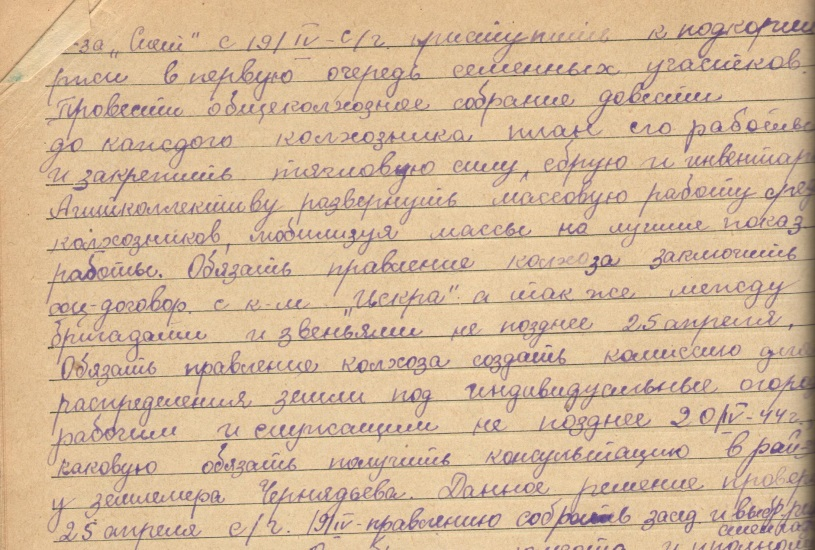 -за „ с 19/IV-с/г. приступить к подкормке
ржи в первую очередь семенных участков.
Провести общеколхозное собрание довести
до каждого колхозника план его работы
и закрепить тягловую силу, сбрую и инвентарь
Агитколлективу развернуть массовую работу сред
колхозников, мобилизуя массы на лучшие показ
работы. Обязать правление колхоза заключить
соц-договор. с к-м „Искра" а так же между
бригадами и звеньями не позднее 25 апреля.
Обязать правление колхоза создать комиссию для
распределения земли под индивидуальные огород
рабочим и служащим не позднее 20/IV-44 г.
каковую обязать получить консультацию в рай
у землемера Чернядьева. Данное решение провер
25 апреля с/г. 19/IV-правлению собрать засед и